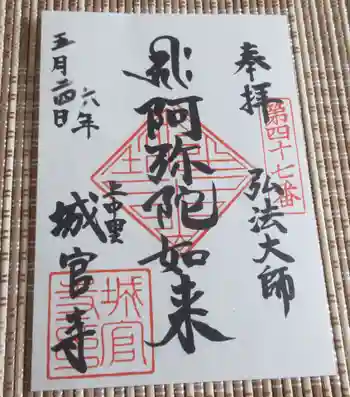 奉拝
第四十七番
弘法大師
阿弥陀如来
上中里
城官寺
六年
五月二四日
城官
寺